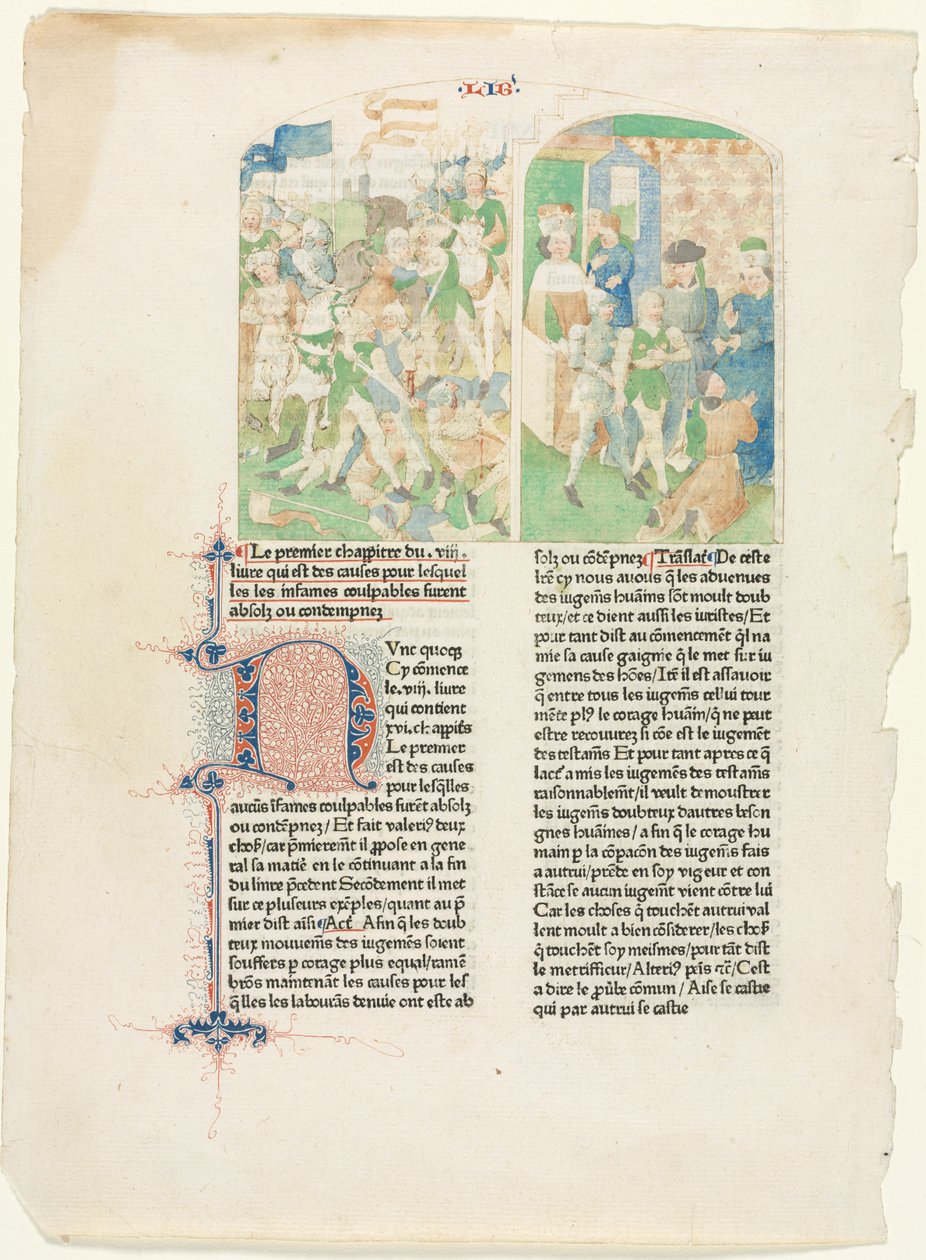 ·LIG'
¶ Le premier chappitre du . viii .
liure qui est des causes pour lesquel
les les infames coulpables furent
absolz ou condempnez
Nunc quoqz
Cy cōmence
le . viij . liure
qui contient
xvi. chappitēs
Le premier
est des causes
pour lesq̄lles
aucūs īfames coulpables furēt absolz
ou condēpnez / Et fait valeri9 deux
choẜ / car p̄mieremt̄ il ꝓpose en gene
ral sa matiē en le cōtinuant a la fin
du liure p̄cedent Secōdement il met
sur ce pluseurs exēples / quant au p̄
mier dist aīsi ¶ Act̄ A fin q̄ les doub
teux mouuem̄s des iugemēs soient
souffers ꝑ corage plus equal / ramē
brōs maintenāt les causes pour les
q̄lles les labourās denuie ont este ab
solz ou cōdēpnez ¶ Trāslat̄ ¶ De ceste
lrē cy nous auōs q̄ les aduenues
des iugem̄s huāins sōt moult doub
teux / et ce dient aussi les iuristes / Et
pour tant dist au cōmencemēt q̄l na
mie sa cause gaignie q̄ le met sur iu
gemens des hōes / Itē il est assauoir
q̄ entre tous les iugem̄s cellui tour
mēte pl9 le corage huāin / q̄ ne peut
estre recouurez si cōe est le iugemēt
des testam̄s Et pour tant apres ce q̄
lactē a mis les iugemēs des testam̄s
raisonnablemt̄ / il veult demoustrer
les iugem̄s doubteux dautres beson
gnes huāines / a fin q̄ le corage hu
main ꝑ la cōpacōn des iugem̄s fais
a autrui / prēde en soy vigeur et con
stāce se aucun iugemt̄ vient cōtre lui
Car les choses q̄ touchēt autrui val
lent moult a bien cōsiderer / les choẜ
q̄ touchēt soy meismes / pour tāt dist
le metrifficur / Alteri9 pēis ⁊c̄ / Cest
a dire le ꝓūbē cōmun / Aise se castie
qui par autrui se castie